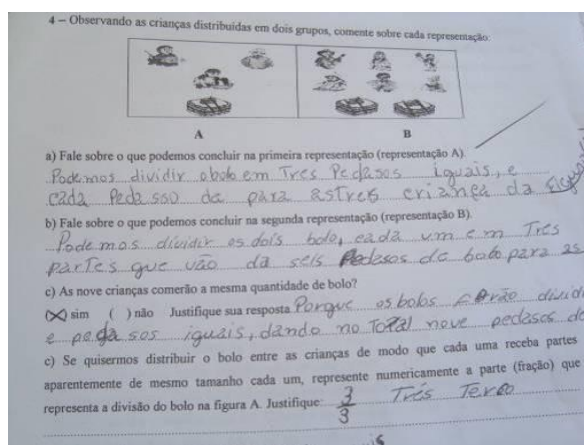 4 – Observando as crianças distribuídas em dois grupos, comente sobre cada representação:
A B
a) Fale sobre o que podemos concluir na primeira representação (representação A).
Podemos dividir o bolo em Tres Pedasos iguais, e
cada Pedasso da para as tres criança da
b) Fale sobre o que podemos concluir na segunda representação (representação B).
Podemos dividir os dois bolo, cada um em Tres
partes que vão da seis Pedasos de bolo para as
c) As nove crianças comerão a mesma quantidade de bolo?
(X) sim ( ) não Justifique sua resposta Porque os bolos dividi
e pedasos iguais, dando no Total nove pedasos do
c) Se quisermos distribuir o bolo entre as crianças de modo que cada uma receba partes
aparentemente de mesmo tamanho cada um, represente numericamente a parte (fração) que
representa a divisão do bolo na figura A. Justifique: 3/3 Três Terço